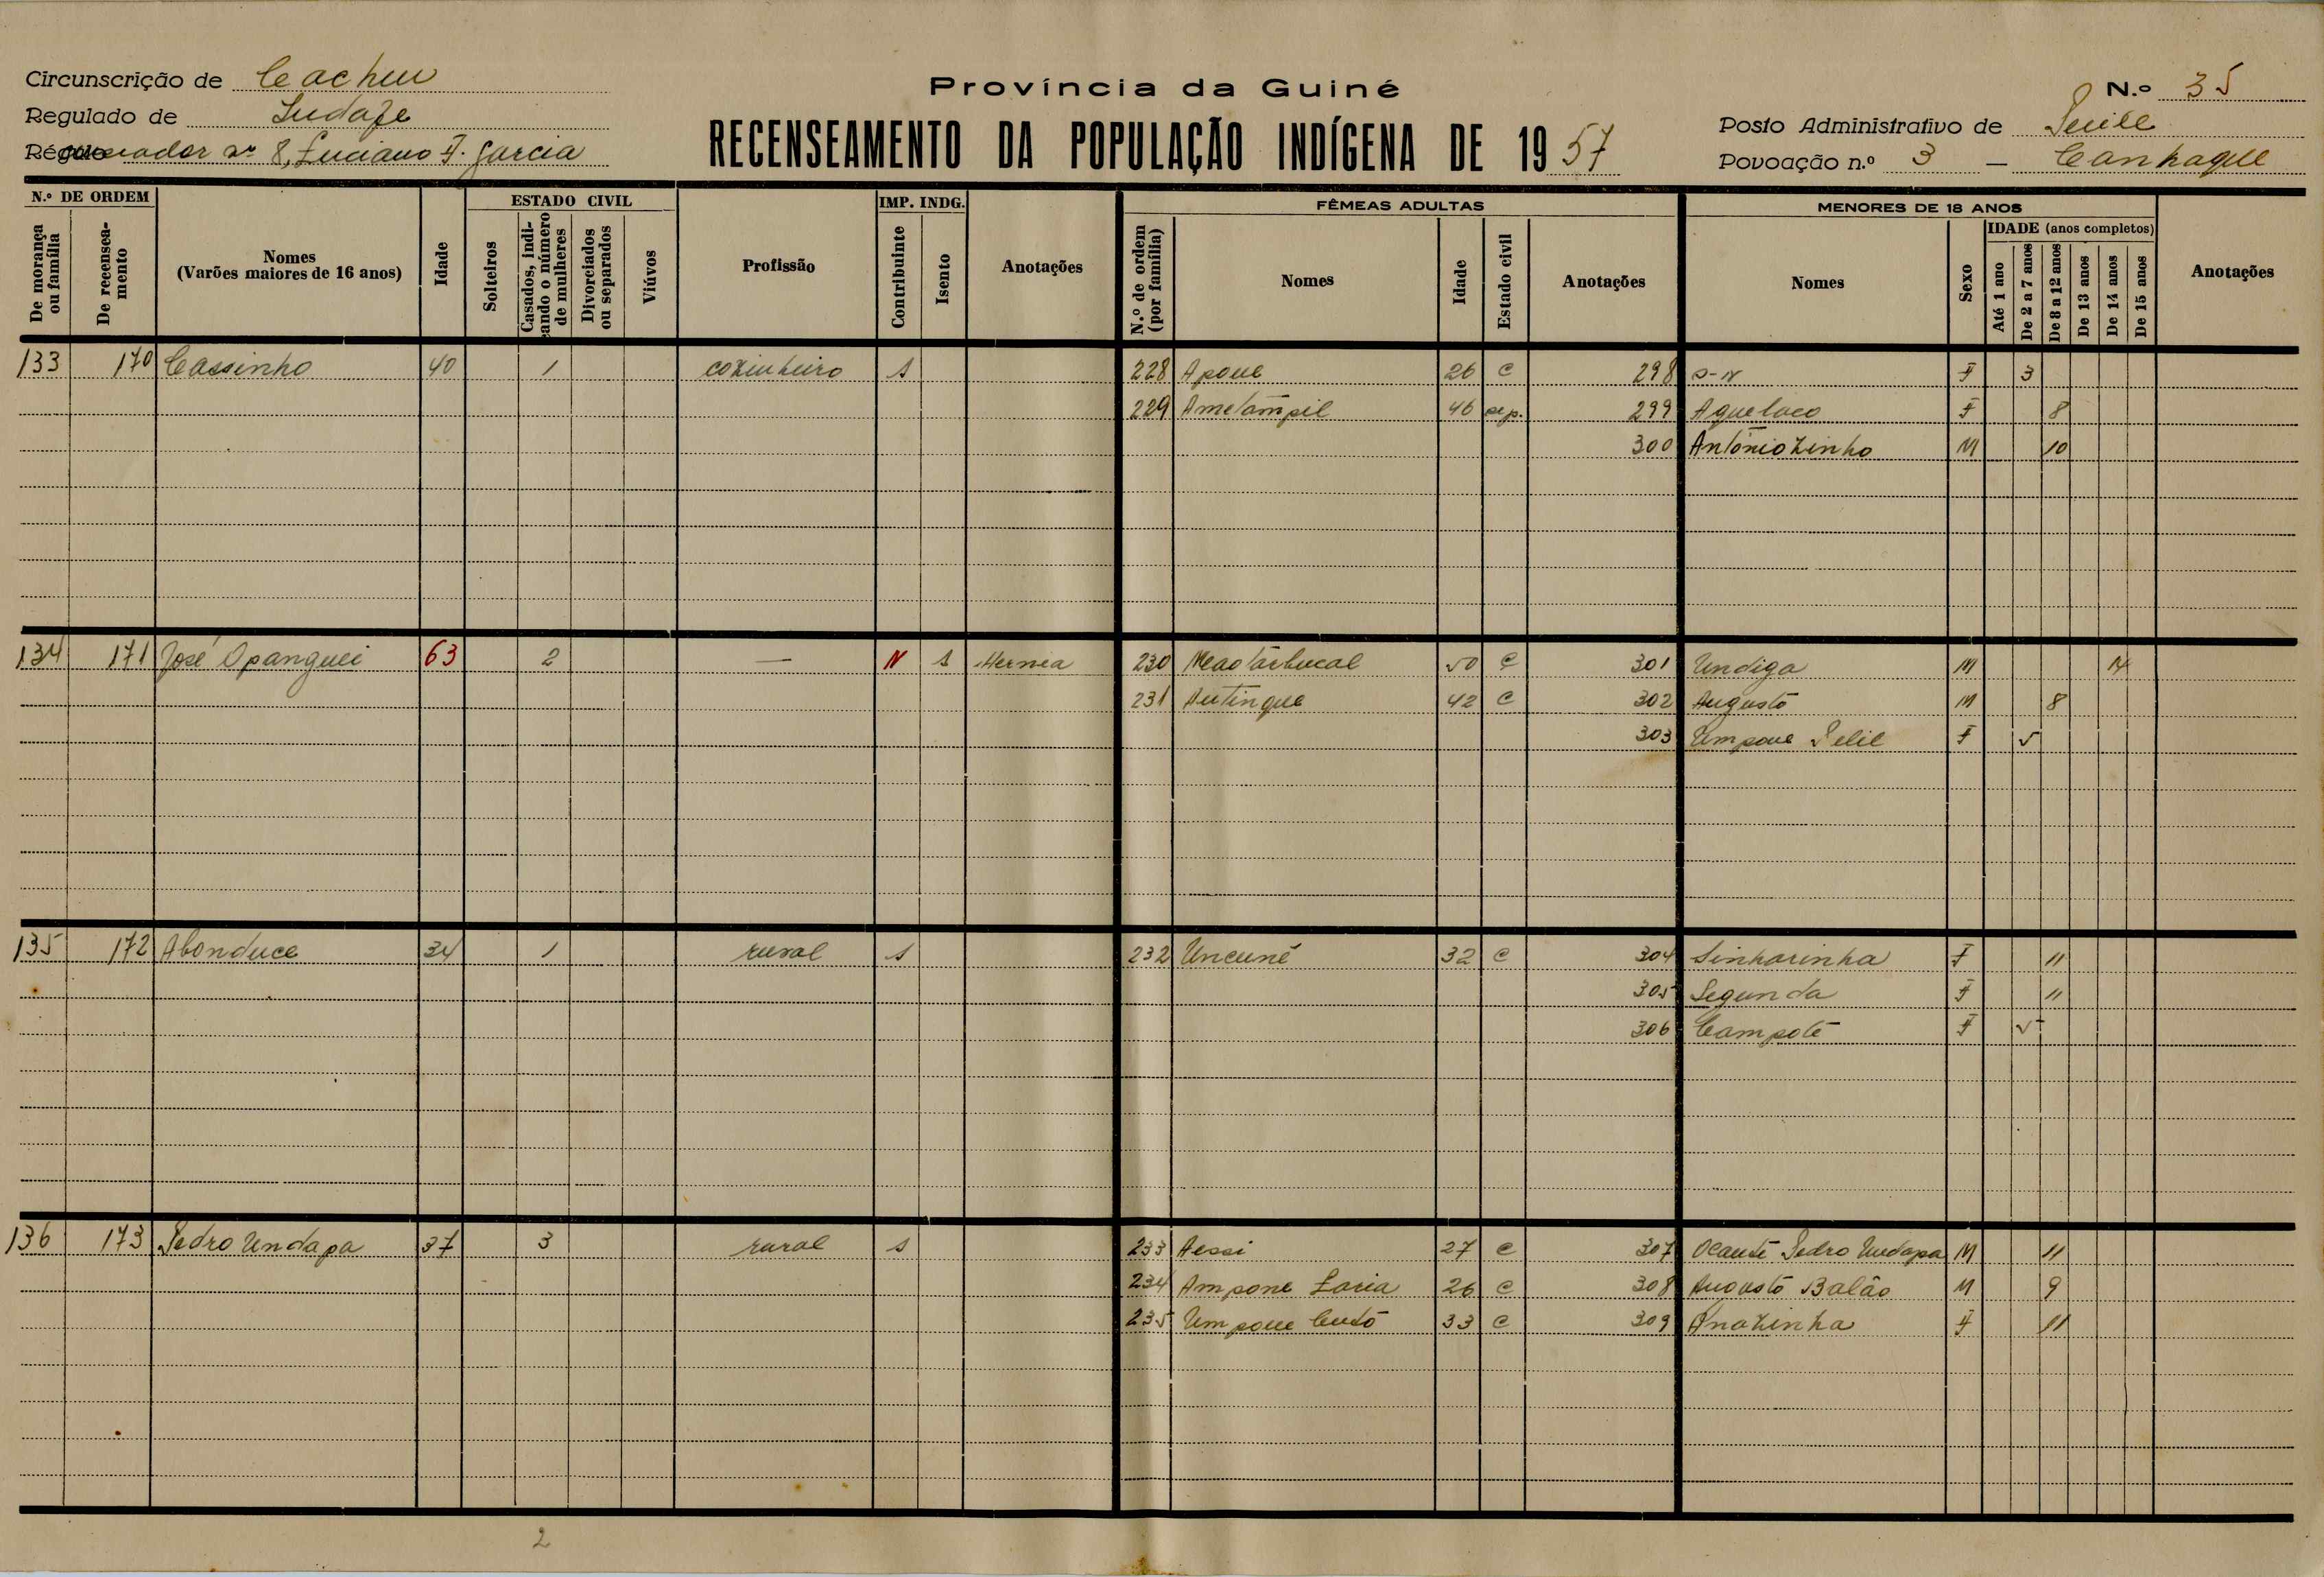 Circunscrição de Cacheu
Província da Guiné
N.º 35
Regulado de
RECENSEAMENTO DA POPULAÇÃO INDÍGENA DE 1957
Posto Administrativo de
8, Luciano F. Garcia
Povoação n.º 3 — Canhaque
N.º DE ORDEM
De morança ou família
De recenseamento
Nomes
(Varões maiores de 16 anos)
Idade
ESTADO CIVIL
Solteiros
Casados, indicando o número de mulheres
Divorciados ou separados
Viúvos
Profissão
IMP. INDG.
Contribuinte
Isento
Anotações
FÊMEAS ADULTAS
N.º de ordem (por família)
Nomes
Idade
Estado civil
Anotações
MENORES DE 18 ANOS
Nomes
Sexo
IDADE (anos completos)
Até 1 ano
De 2 a 7 anos
De 8 a 12 anos
De 13 anos
De 14 anos
De 15 anos
Anotações
133 170 Cassinho 40 1 cozinheiro s 228 Apoue 26 C 298 s-n F 3
229 Ametampil 46 sep. 299 Agueloco F 8
300 Antóniozinho M 10
134 171 José Opanguei 63 2 — N s Hernea 230 50 C 301 Undiga M 14
231 Autingue 42 C 302 Augusto M 8
303 Umpoue F 5
135 172 Abonduce 34 1 rural s 232 Uncuné 32 C 304 Sinharinha F 11
305 Segunda F 11
306 Campoté F 5
136 173 Pedro Undapa 37 3 rural s 233 Aessi 27 C 307 Ocanté Pedro Undapa M 11
234 Ampone Loria 26 C 308 Augusto Balão M 9
235 Umpoue 33 C 309 Anazinha F 11
2